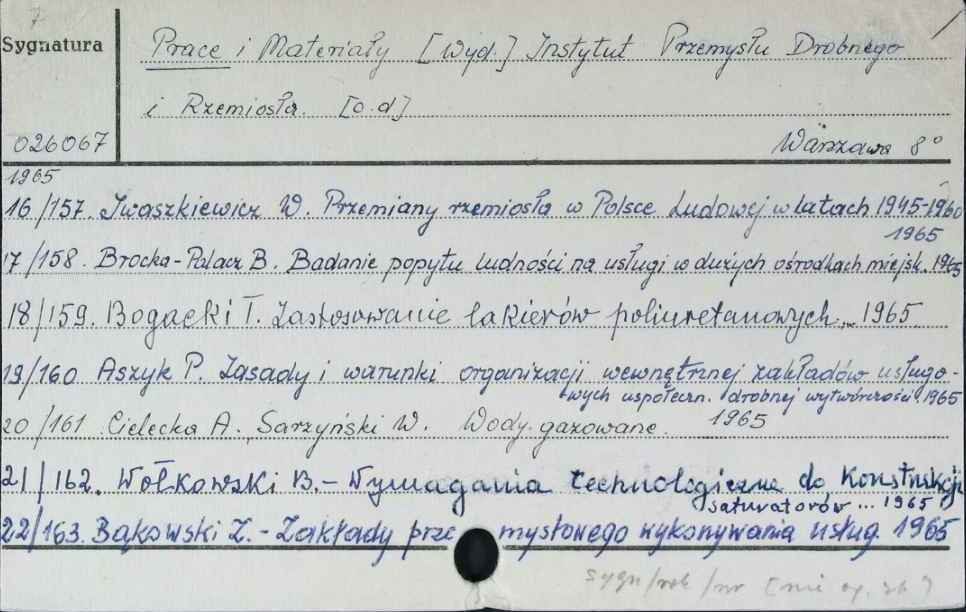 7
Sygnatura
Prace i Materiały [Wyd.] Instytut Przemysłu Drobnego
i Rzemiosła. [o.d]
026067
Warszawa 8°
1965
16/157. Iwaszkiewicz W. Przemiany rzemiosła w Polsce Ludowej w latach 1945-1960
1965
17/158. Brocka-Palacz B. Badanie popytu ludności na usługi w dużych ośrodkach miejsk. 1965
18/159. Bogacki T. Zastosowanie lakierów poliuretanowych... 1965
19/160 Aszyk P. Zasady i warunki organizacji wewnętrznej zakładów usługo-
wych uspołeczn. drobnej wytwórczości. 1965
20/161 Cielecka A. Sarzyński W. Wody gazowane 1965
21/162. Wołkowski B. - Wymagania technologiczne do Konstrukcji
saturatorów ... 1965
22/163. Bąkowski Z. - Zakłady przemysłowego wykonywania usług. 1965
sygn/rok/nr